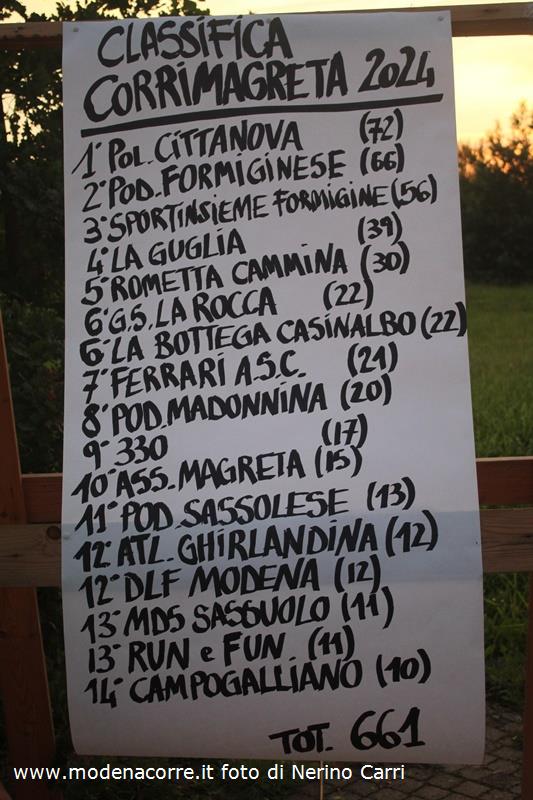 CLASSIFICA
CORRIMAGRETA 2024
1° POL. CITTANOVA (72)
2° POD. FORMIGINESE (66)
3° SPORTINSIEME FORMIGINE (56)
4° LA GUGLIA (39)
5° ROMETTA CAMMINA (30)
6° G.S. LA ROCCA (22)
6° LA BOTTEGA CASINALBO (22)
7° FERRARI A.S.C. (21)
8° POD. MADONNINA (20)
9° 330 (17)
10° ASS. MAGRETA (15)
11° POD. SASSOLESE (13)
12° ATL. GHIRLANDINA (12)
12° DLF MODENA (12)
13° MDS SASSUOLO (11)
13° RUN e FUN (11)
14° CAMPOGALLIANO (10)
TOT. 661
www.modenacorre.it foto di Nerino Carri